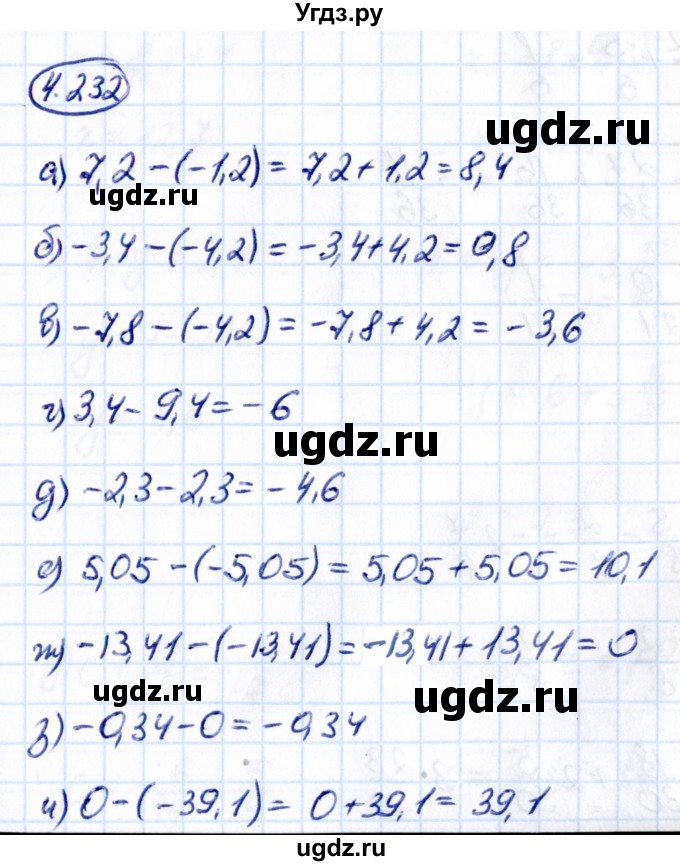 Угдз.ру
4.232
ugdz.ru
а) 7,2 - (-1,2) = 7,2 + 1,2 = 8,4
ugdz.ru
б) -3,4 - (-4,2) = -3,4 + 4,2 = 0,8
в) -7,8 - (-4,2) = -7,8 + 4,2 = -3,6
г) 3,4 - 9,4 = -6
ugdz.ru
д) -2,3 - 2,3 = -4,6
е) 5,05 - (-5,05) = 5,05 + 5,05 = 10,1
ж) -13,41 - (-13,41) = -13,41 + 13,41 = 0
ugdz.ru
ugdz.ru
з) -0,34 - 0 = -0,34
и) 0 - (-39,1) = 0 + 39,1 = 39,1
ugdz.ru